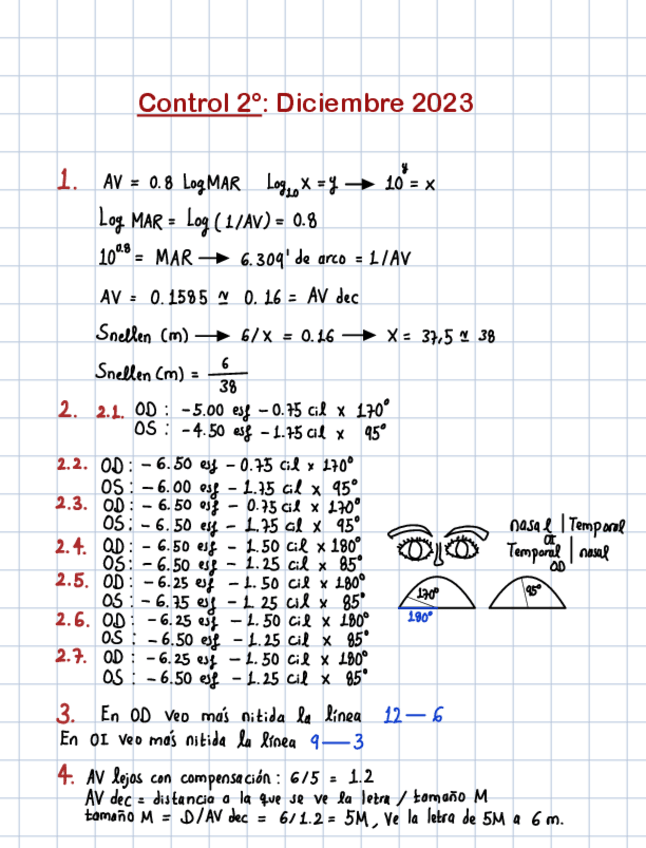 Control 2º: Diciembre 2023
1. AV = 0.8 LogMAR Log₁₀ X = y → 10^y = x
Log MAR = Log (1/AV) = 0.8
10^0.8 = MAR → 6.309' de arco = 1/AV
AV = 0.1585 ≃ 0.16 = AV dec
Snellen (m) → 6/x = 0.16 → X = 37,5 ≃ 38
Snellen (m) = 6/38
2. 2.1. OD : -5.00 esf -0.75 cil x 170°
OS : -4.50 esf -1.75 cil x 95°
2.2. OD : -6.50 esf -0.75 cil x 170°
OS : -6.00 esf -1.75 cil x 95°
2.3. OD : -6.50 esf -0.75 cil x 170°
OS : -6.50 esf -1.75 cil x 95°
2.4. OD : -6.50 esf -1.50 cil x 180°
OS : -6.50 esf -1.25 cil x 85°
2.5. OD : -6.25 esf -1.50 cil x 180°
OS : -6.75 esf -1.25 cil x 85°
2.6. OD : -6.25 esf -1.50 cil x 180°
OS : -6.50 esf -1.25 cil x 85°
2.7. OD : -6.25 esf -1.50 cil x 180°
OS : -6.50 esf -1.25 cil x 85°
nasal | Temporal
OI
Temporal | nasal
OD
170°
95°
180°
3. En OD veo más nitida la línea 12 — 6
En OI veo más nitida la línea 9 — 3
4. AV lejos con compensación : 6/5 = 1.2
AV dec = distancia a la que se ve la letra / tamaño M
tamaño M = D/AV dec = 6/1.2 = 5M, Ve la letra de 5M a 6 m.